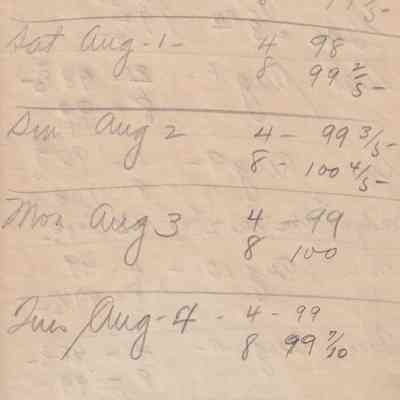 99 /5-
Sat Aug-1- 4 98
8 99 2/5-
Sun Aug 2 4- 99 3/5-
8- 100 4/5-
Mon Aug 3 4 -99
8 100
Tues Aug-4- 4-99
8 99 7/10